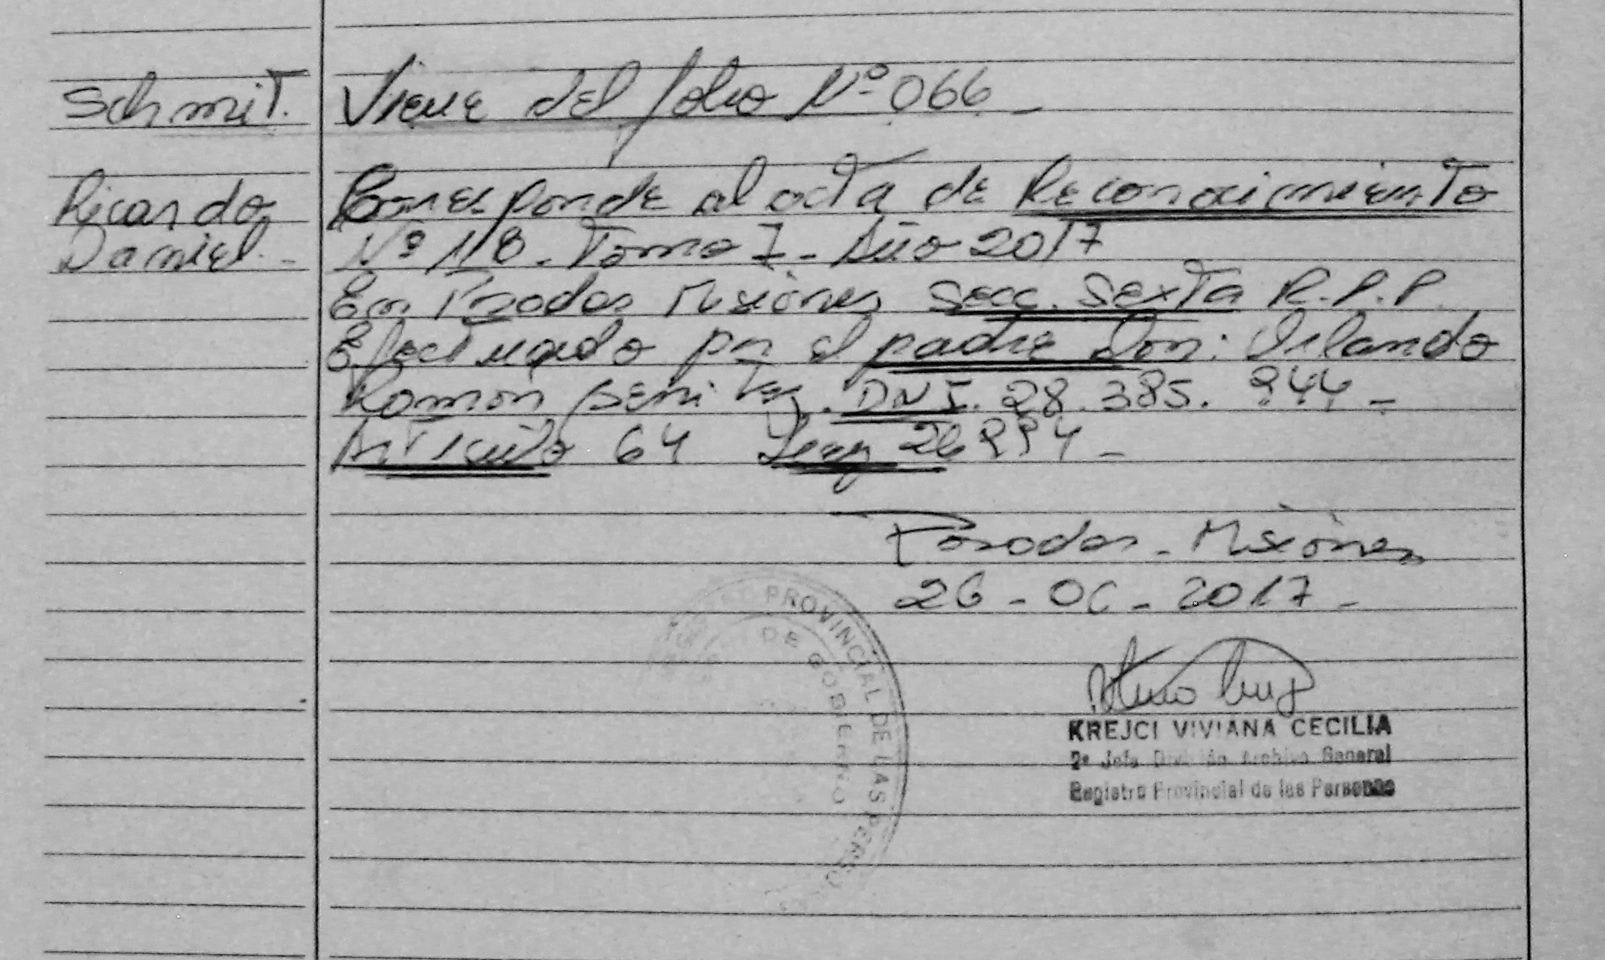 Schmit.
Viene del folio Nº 066 -
Ricardo
Daniel. -
Corresponde al acta de Reconocimiento
Nº 118 - Tomo I - Año 2017
En Posadas Misiones Secc. Sexta R.P.P.
Efectuado por el padre Don: Orlando
Ramon Benitez. DNI. 28.385.944 -
Articulo 64 Ley 26994 -
Posadas - Misiones
26 - OC - 2017 -
KREJCI VIVIANA CECILIA
2º Jefe División Archivo General
Registro Provincial de las Personas
PROVINCIAL DE LAS PERSO
DE GOBIERNO